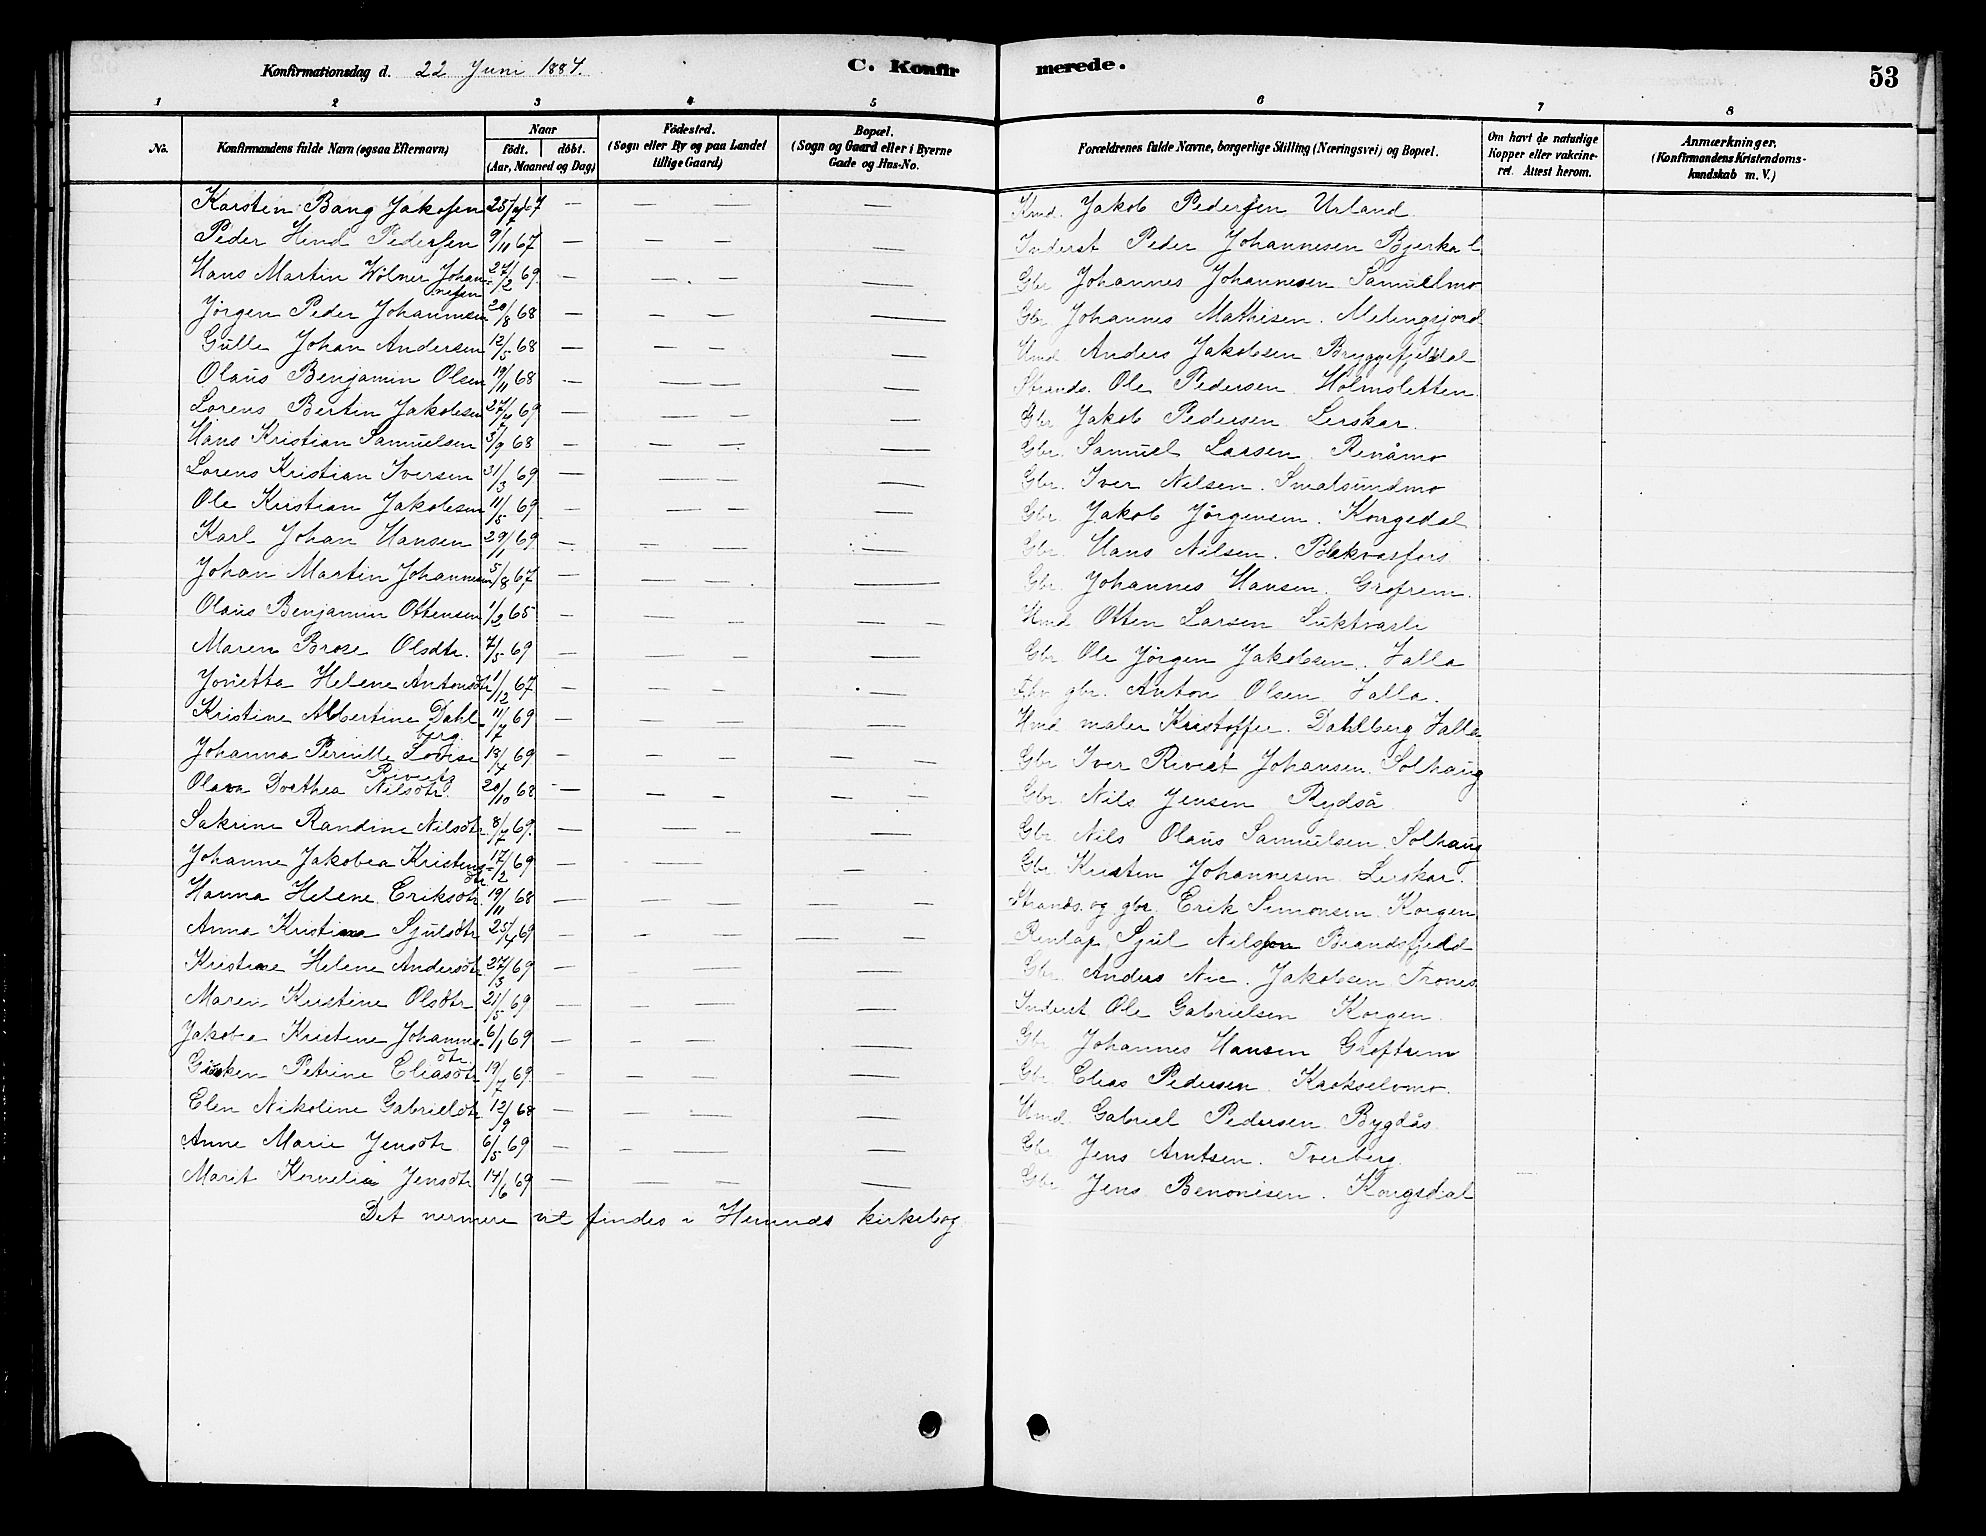 Konfirmationsdag d. 22 Juni 1884. C. Konfirmerede. 53
1 2 3 4 5 6 7 8
No. Konfirmandens fulde Navn (ogsaa Efternavn) Naar födt. döbt. (Aar, Maaned og Dag) Födested. (Sogn eller By og paa Landet tillige Gaard) Bopæl. (Sogn og Gaard eller i Byerne Gade og Hus-No. Forældrenes fulde Navne, borgerlige Stilling (Næringsvei) og Bopæl. Om havt de naturlige Kopper eller vakcineret. Attest herom. Anmærkninger. (Konfirmandens Kristendomskundskab m. V.)
Karsten Bang Jakobsen 67 — — — — Hmd. Jakob Pedersen Urland.
Peder Hind Pedersen 9/11 67 — — — — Inderst Peder Johannesen Bjerka
Hans Martin Wölner Johannesen 27/2 69. — — — — Gbr Johannes Johannesen Samuelmo
Jörgen Peder Johannesen 20/8 68 — — — — Gbr Johannes Mathisen. Melingsjord
Gulle Johan Andersen 12/5 68 — — — — Hmd Anders Jakobsen Bryggefjeldal
Olaus Benjamin Olsen 19/11 68 — — — — Strands. Ole Pedersen Holmsletten
Lorens Bertin Jakobsen 27/4 69 — — — — Gbr Jakob Pedersen Lerskar.
Hans Kristian Samuelsen 3/9 68 — — — — Gbr. Samuel Larsen Renåmo
Lorens Kristian Iversen 31/3 69 — — — — Gbr. Iver Nilsen. Smalsundmo
Ole Kristian Jakobsen 11/5 69 — — — — Gbr. Jakob Jörgensen. Kongsdal
Karl Johan Hansen 29/1 69. — — — — Gbr. Hans Nilsen.
Johan Martin Johannesen 5/8 67 — — — — Gbr. Johannes Hansen. Grofrem.
Olaus Benjamin Ottensen 1/2 65 — — — — — Hmd Otten Larsen Luktvasli
Maren Brose Olsdtr. 7/5 69 — — — — Gbr Ole Jörgen Jakobsen. Valla
Jonetta Helene Antonsdtr 1/12 67 — — — — Fhv gbr. Anton Olsen Valla.
Kristine Albertine Dahlberg. 11/7 69 — — — — Hmd maler Kristoffer. Dahlberg Valla
Johanna Pernille Lovise Riviets 13/4 69 — — — — — Gbr Iver Riviet Johansen. Solhaug
Olava Dorthea Nilsdtr. 20/10 68 — — — — — Gbr. Nils Jensen Rydså
Sakrine Randine Nilsdtr. 8/7 69. — — — — Gbr. Nils Olaus Samuelsen. Solhaug
Johanne Jakobea Kristensdtr 17/2 69 — — — Gbr Kristen Johannesen Lerskar.
Hanna Helene Eriksdtr. 19/11 68 — — — — — Strands. og gbr. Erik Simonsen. Korgen
Anna Kristina Sjulsdtr 25/4 69 — — — — — Renlap Sjul Nilsson Brandsfjeld
Kristine Helene Andersdtr 27/3 69 — — — — Gbr. Anders Nic. Jakobsen Trones
Maren Kristine Olsdtr 21/5 69 — — — — Inderst Ole Gabrielsen Korgen.
Jakobea Kristine Johannesdtr. 6/1 69 — — — — Gbr Johannes Hansen Groftrem
Gjøken Petrine Eliasdtr 19/7 69. — — — — Gbr. Elias Pedersen. Krokselvmo.
Elen Nikoline Gabrielsdtr 12/9 68 — — — — Hmd. Gabriel Pedersen. Bygdås.
Anne Marie Jensdtr 6/5 69 — — — — Gbr Jens Arntsen. Tverberg.
Marit Kornelia Jensdtr 14/6 69 — — — — Gbr Jens Benonisen. Kongsdal
Det nermere vil findes i Hemnes kirkebog